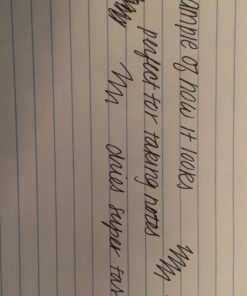 ample of how it looks
perfect for taking notes
dries super fas